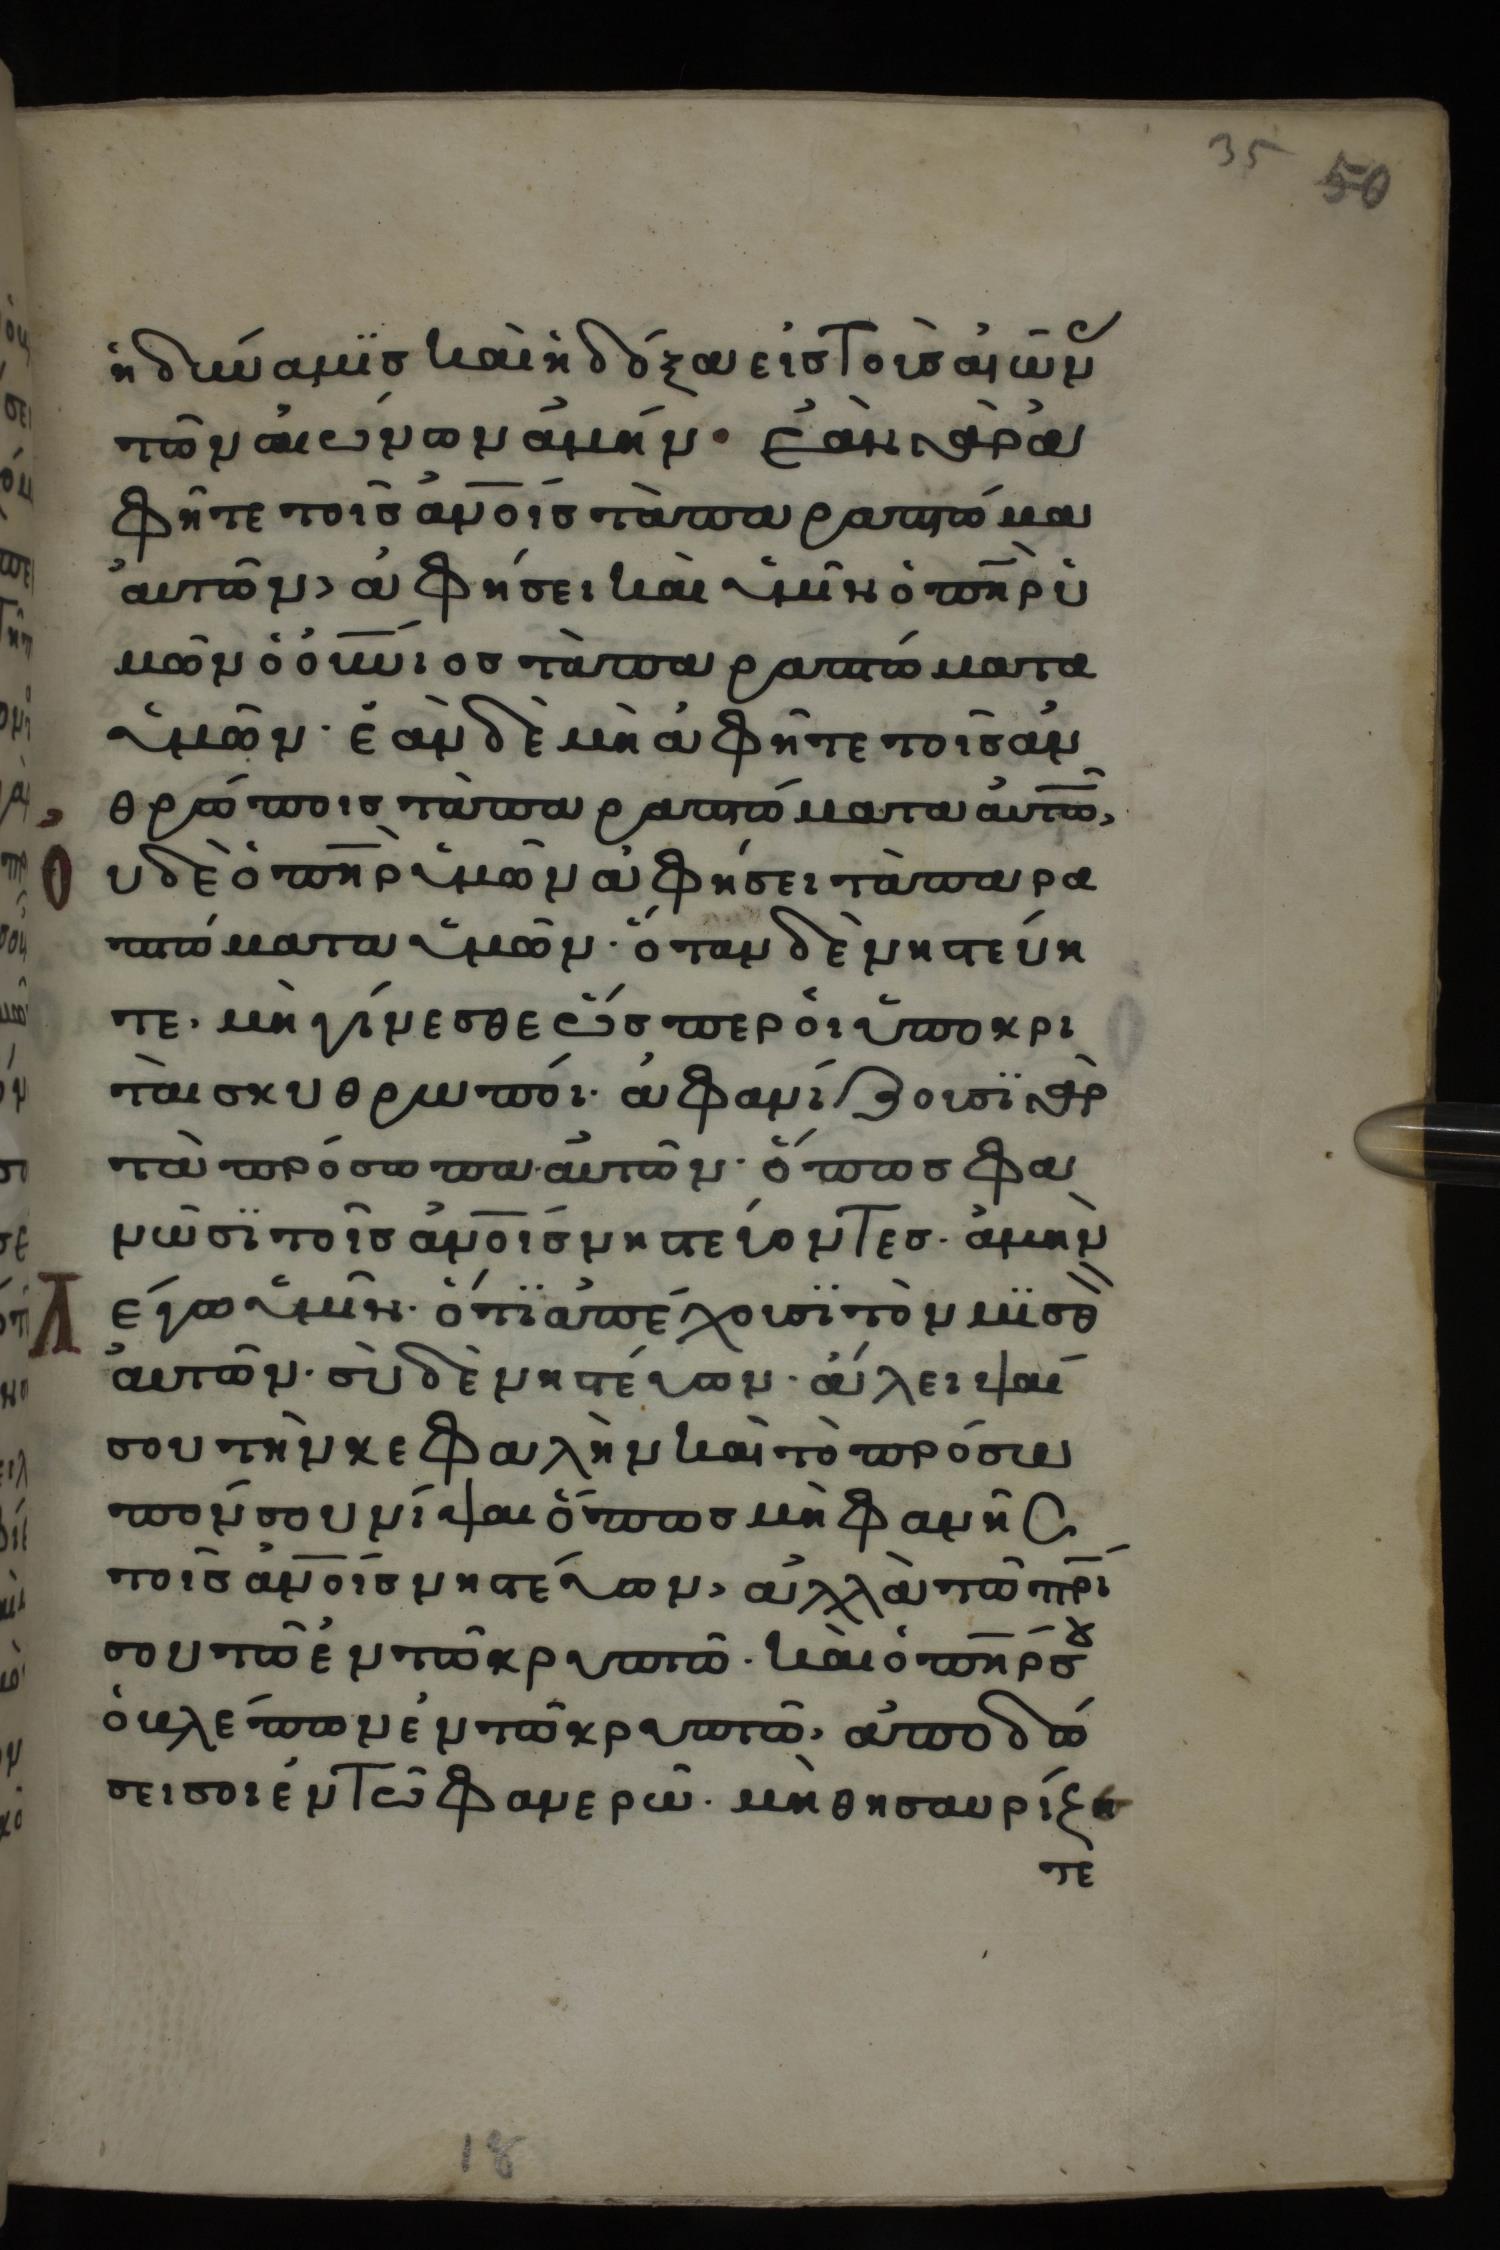 35 50
ἡ δύναμϊσ καὶ ἡ δόξα εἰσ τοὺσ αἰῶν
τῶν αἰώνων ἀμήν· ἐὰν γὰρ ἀ
φῆτε τοῖσ ἀν̅ο̅ίσ τὰ παραπτώμα
ἀυτῶν, ἀφήσει καὶ ὑμῖν ὁ π̅η̅ρ ὑ
μῶν ὁ ὀυ̅ν̅ιοσ τὰ παραπτώματα
ὑμῶν· ἐὰν δὲ μὴ ἀφῆτε τοῖσ ἀν
θρώποισ τὰ παραπτώματα ἀυτῶ,
Ουδὲ ὁ π̅η̅ρ ὑμῶν ἀφήσει τὰ παρα
πτώματα ὑμῶν· ὅταν δὲ νηστεύη
τε· μὴ γίνεσθε ὥσπερ ὁι ὑποκρι
τὰι σκυθρωπόι· ἀφανίζουσϊ γὰρ
τὰ πρόσωπα ἀυτῶν· ὅπωσ φα
νῶσϊ τοῖσ ἀν̅ο̅ίσ νηστεύοντεσ· ἀμὴν
Λέγω ὑμῖν· ὅτϊ ἀπέχουσϊ τὸν μϊσθὸ
ἀυτῶν· σὺ δὲ νηστέυων· ἄλειψαί
σου τὴν κεφαλὴν καὶ τὸ πρόσω
πόν σου νίψαι ὅπωσ μὴ φανῆσ
τοῖσ ἀν̅ο̅ίσ νηστέυων, ἀλλὰ τῶ π̅ρ̅ί
σου τῶ ἐν τῶ κρυπτῶ· καὶ ὁ π̅η̅ρ σου
ὁ βλέπων ἐν τῶ κρυπτῶ, ἀποδώ
σει σοι ἐν τῶ φανερῶ· μὴ θησαυρίζη
τε
18